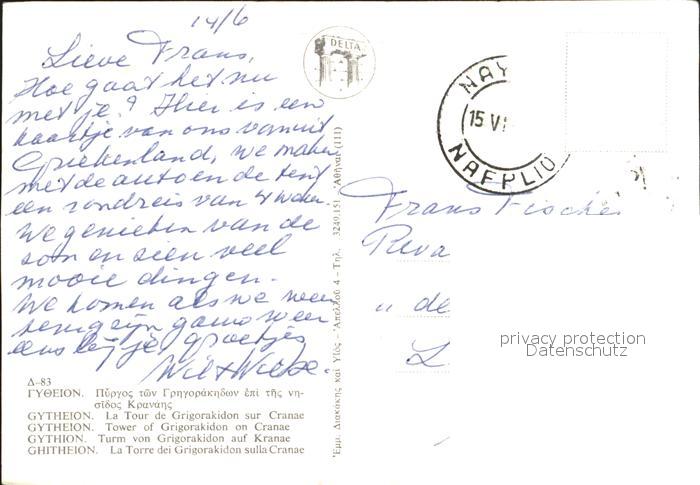 14/6
Lieve Frans,
Hoe gaat het nu
met je? Hier is een
kaartje van ons vanuit
Griekenland, we maken
met de auto en de tent
een rondreis van 4 weken.
We genieten van de
zon en zien veel
mooie dingen.
We komen als we weer
terug zijn gauw weer
eens bij je, groetjes
Wil +
Δ-83
ΓΥΘΕΙΟΝ. Πύργος τῶν Γρηγοράκηδων ἐπὶ τῆς νη-
σῖδος Κρανάης
GYTHEION. La Tour de Grigorakidon sur Cranae
GYTHEION. Tower of Grigorakidon on Cranae
GYTHION. Turm von Grigorakidon auf Kranae
GHITHEION. La Torre dei Grigorakidon sulla Cranae
DELTA
Ἐμμ. Διακάκης καὶ Υἱός - Ἀπελλοῦ 4 - Τηλ. 3249.151 Ἀθῆναι (111)
ΝΑΥ
15 VI
NAFPLIO
Frans Fischer
Reva
" de
L
privacy protection
Datenschutz